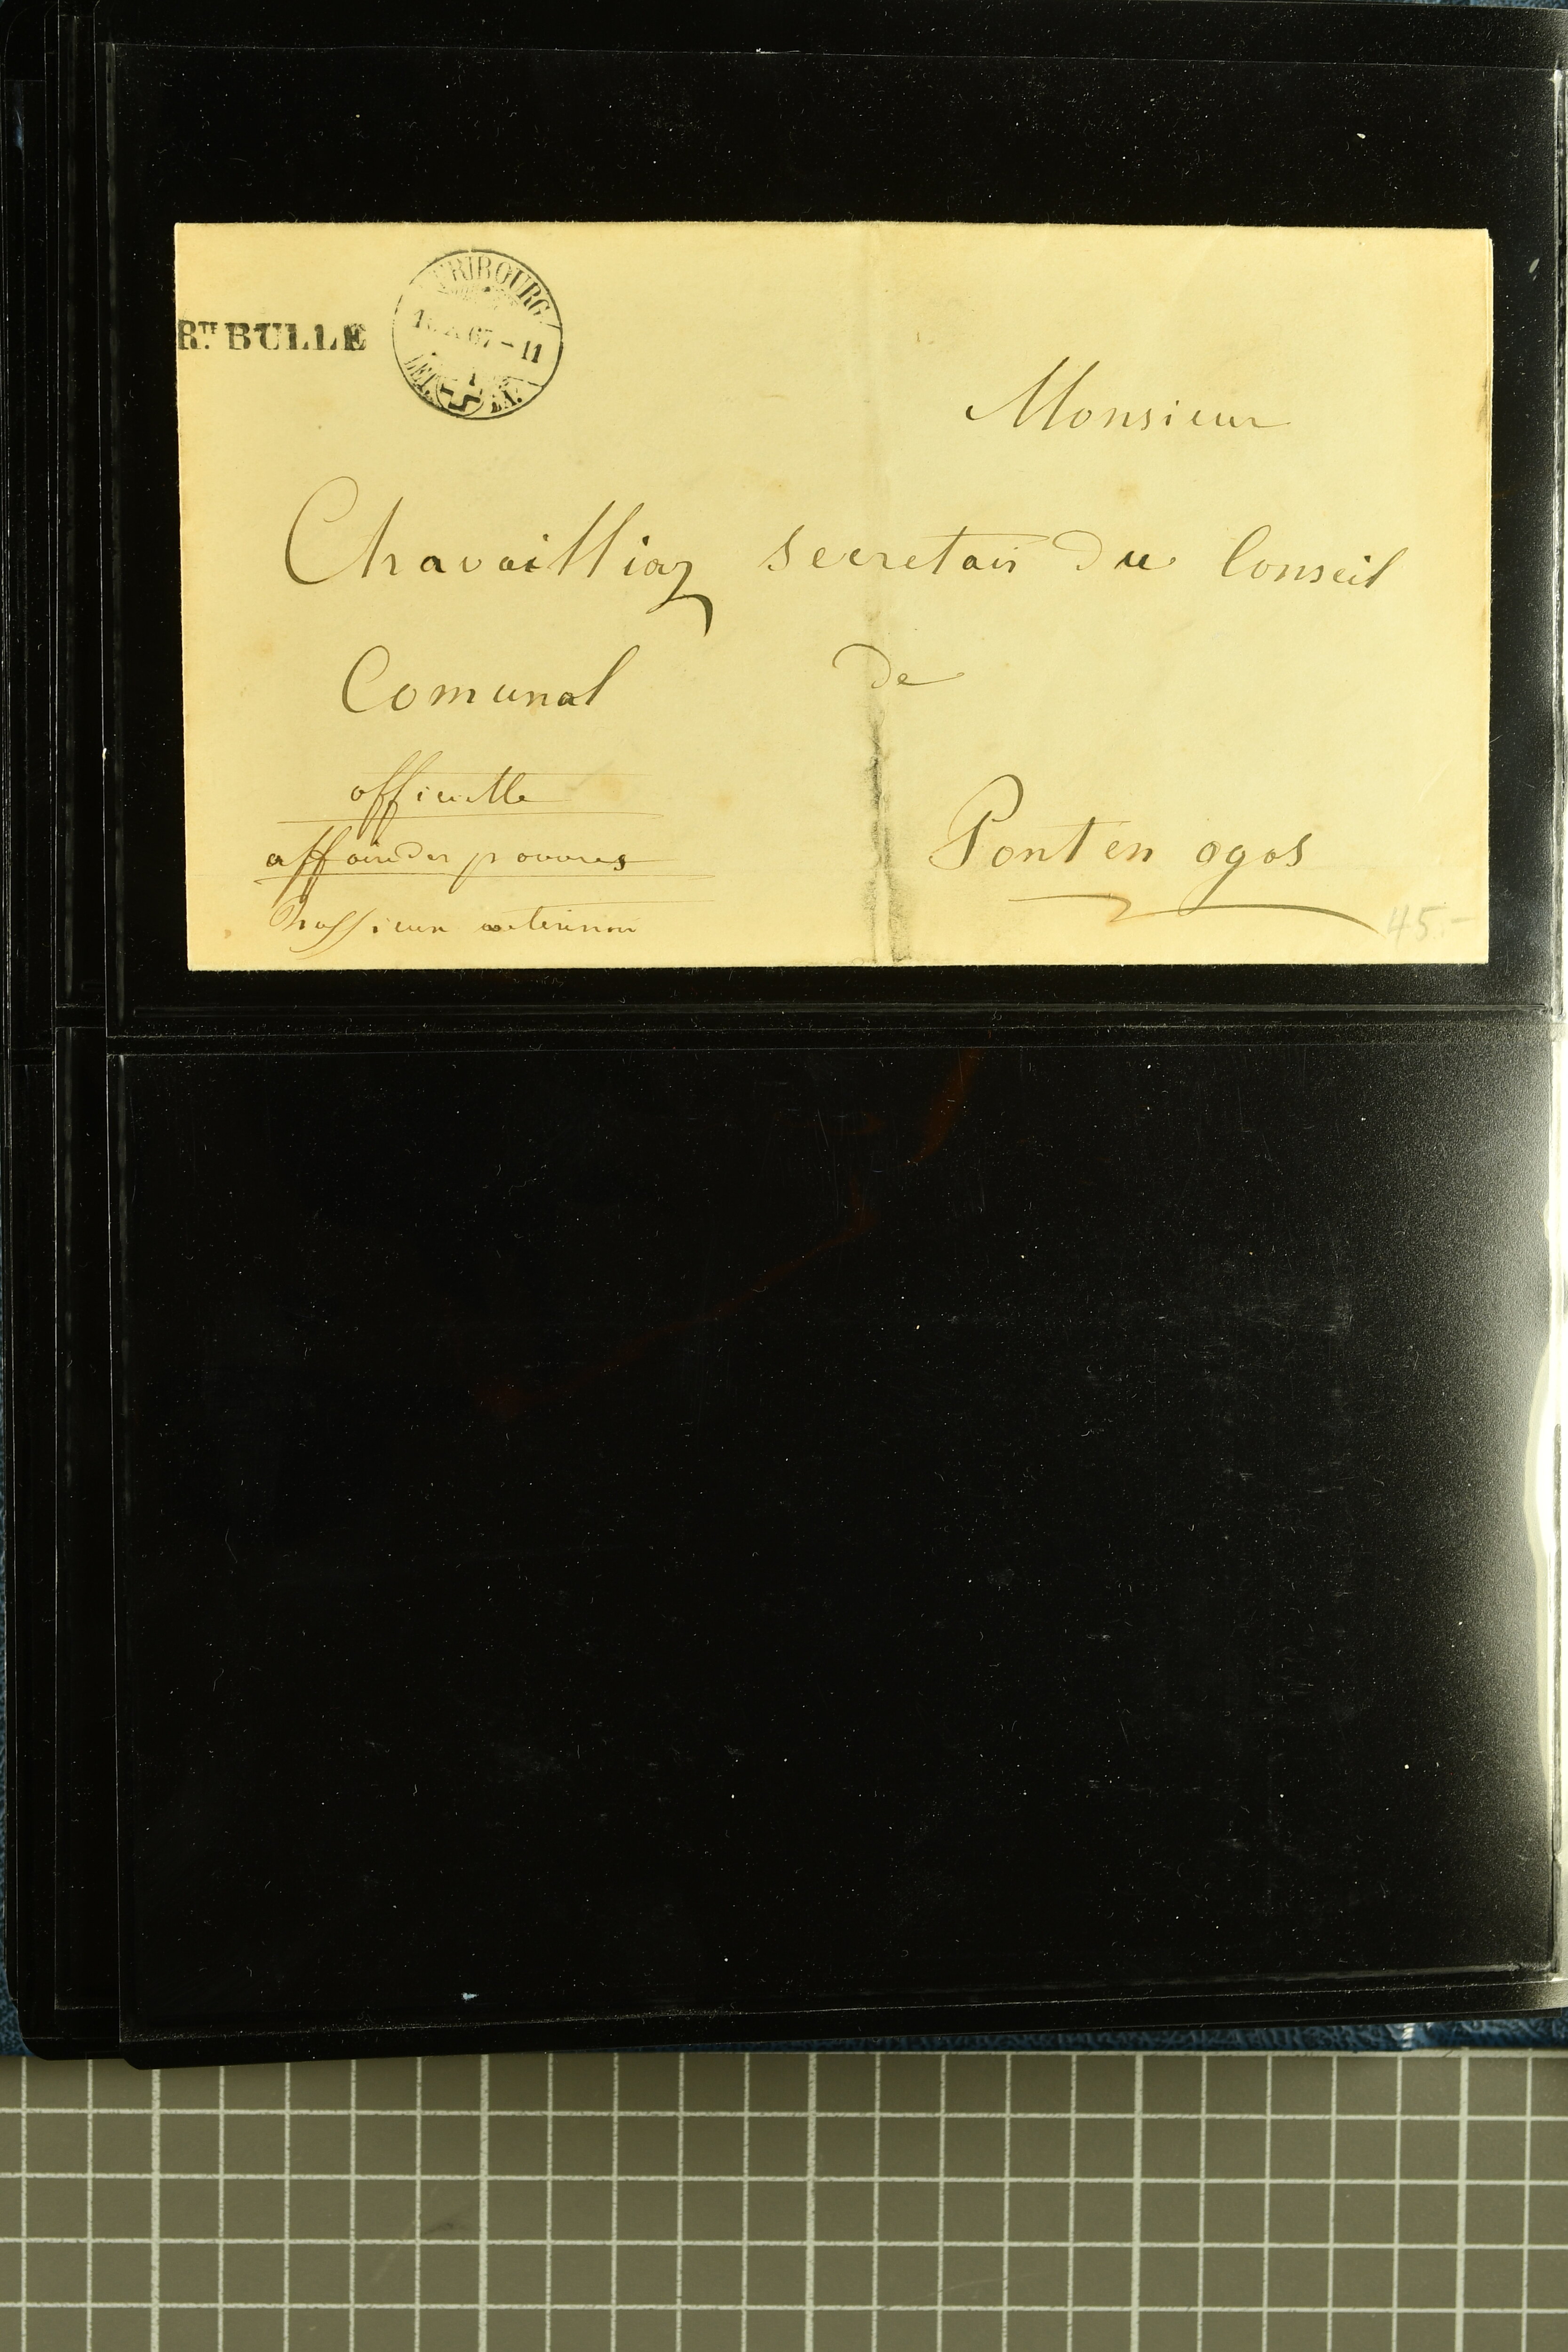 RTE BULLE
FRIBOURG
67 - 11
Monsieur
Chavailliaz secretair du Conseil
Comunal de
officielle
affaire des pauvres
Pont en ogos
45.-